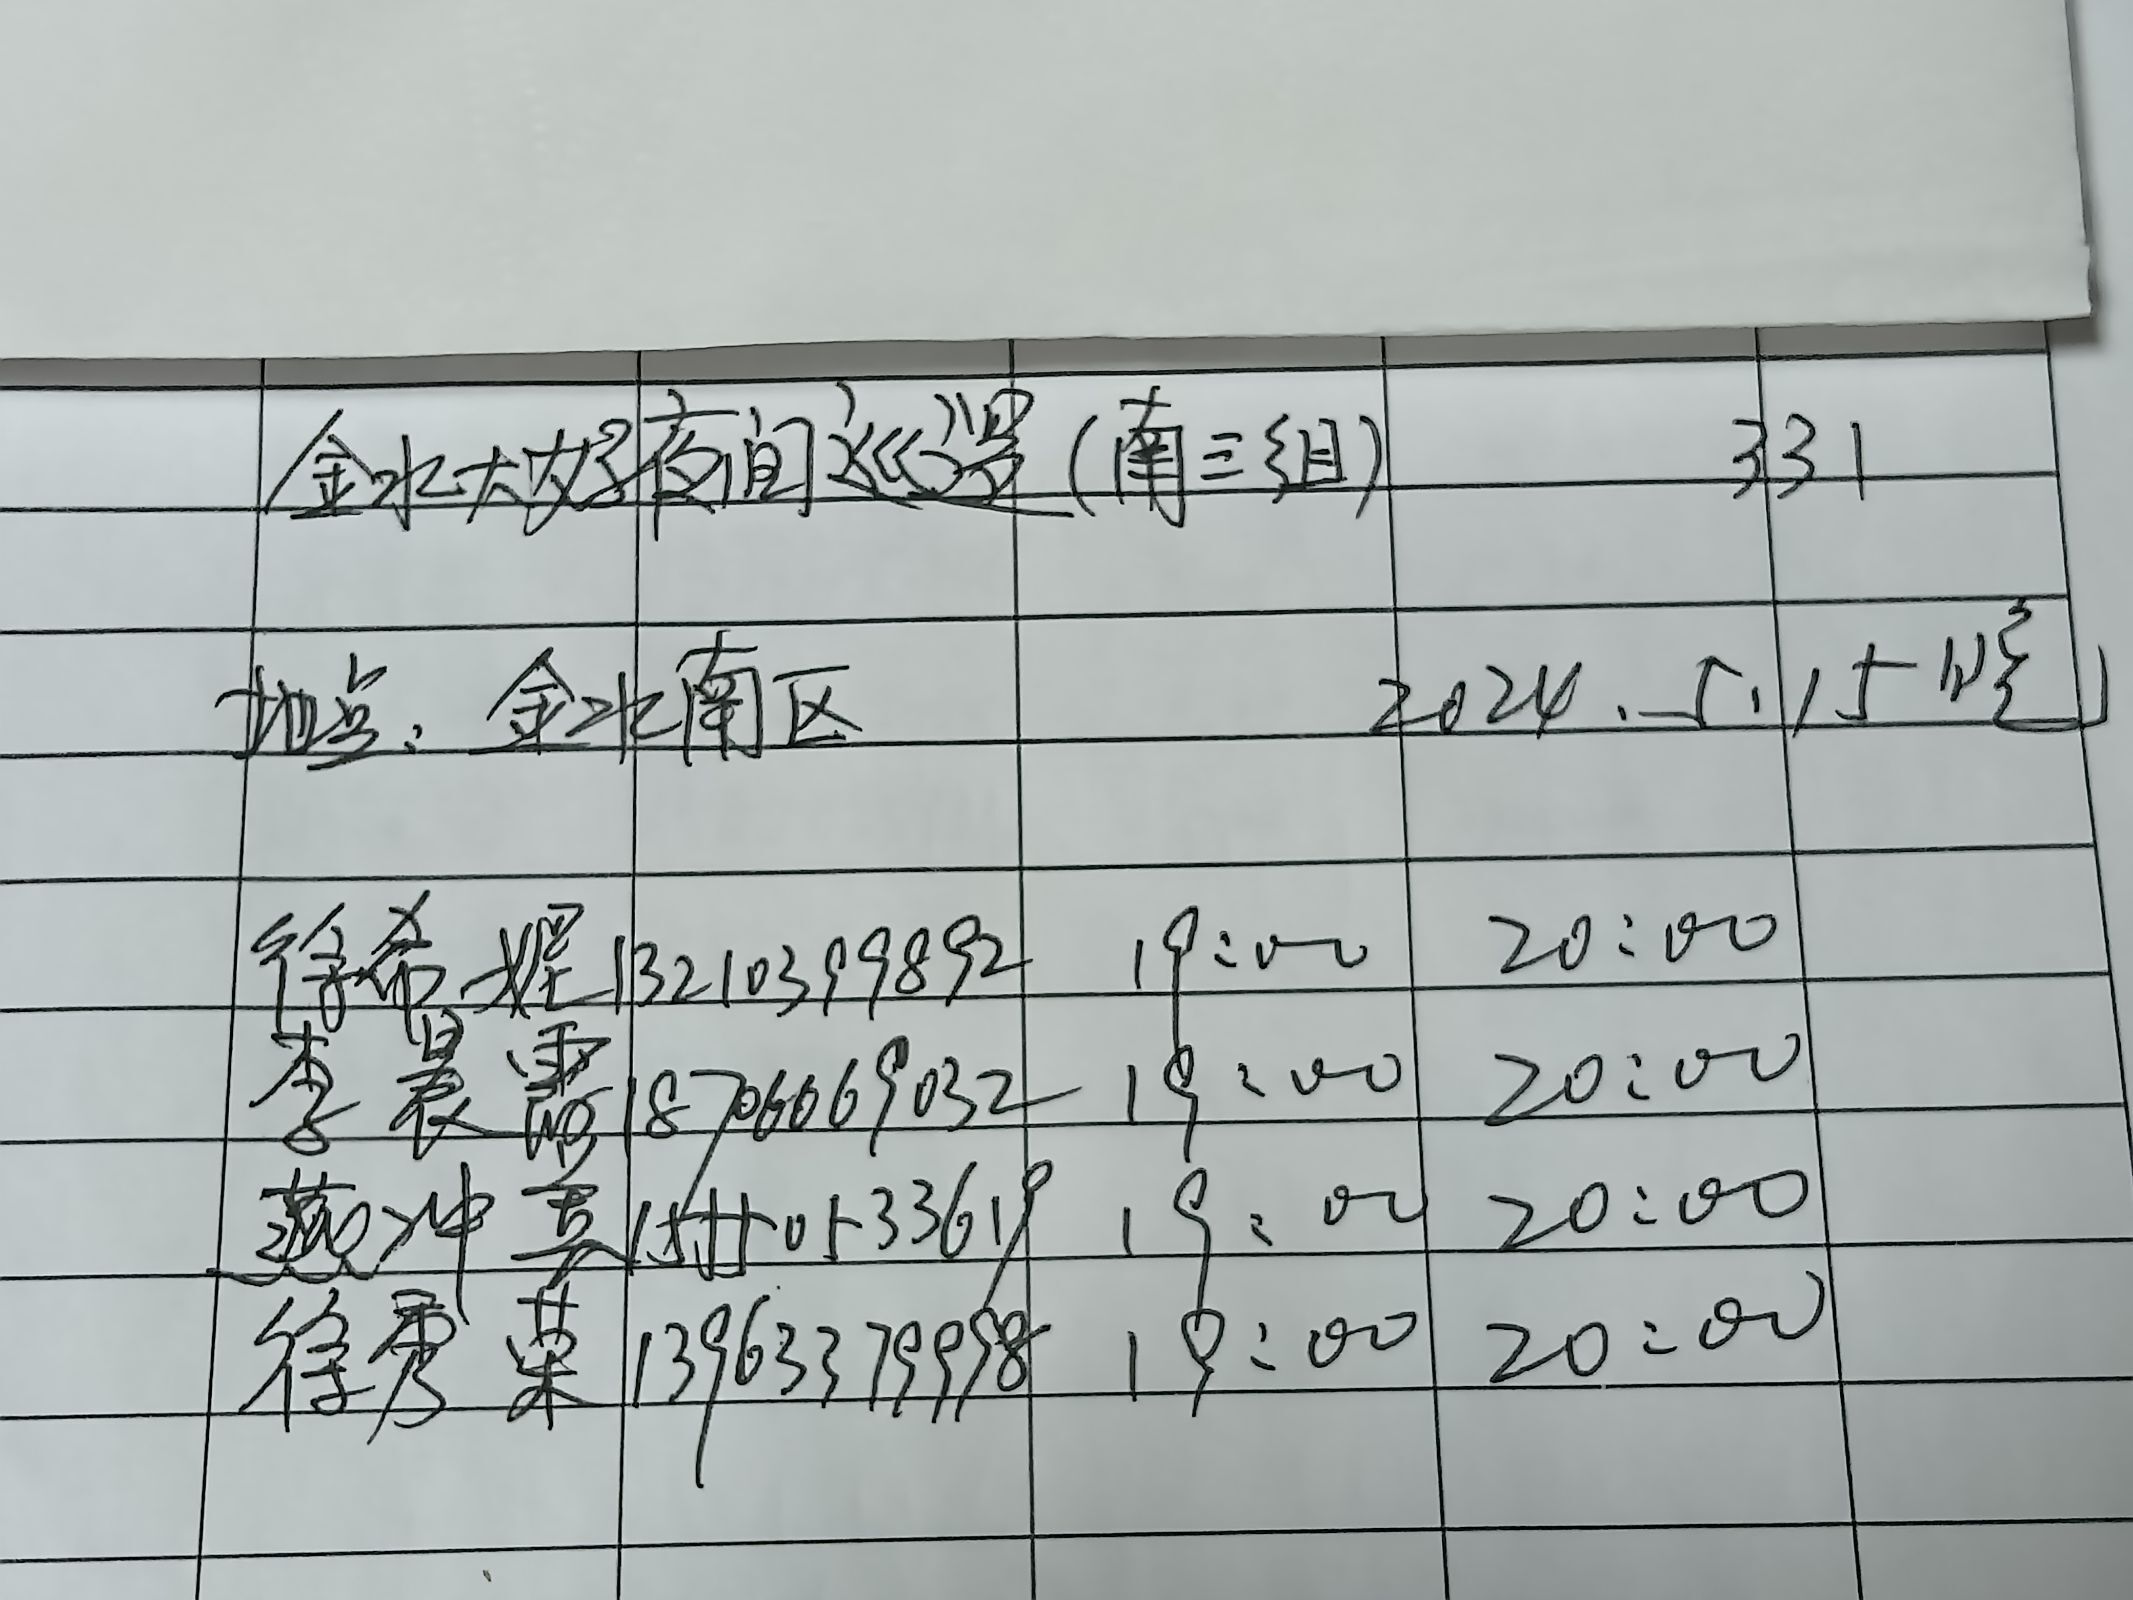 金水大妈夜间巡逻(南三组) 331
地点:金水南区 2024.5.15晚
徐希娌 13210399892 19:00 20:00
李晨露 18706669032 19:00 20:00
燕冲 19:00 20:00
徐秀菜 13963379998 19:00 20:00